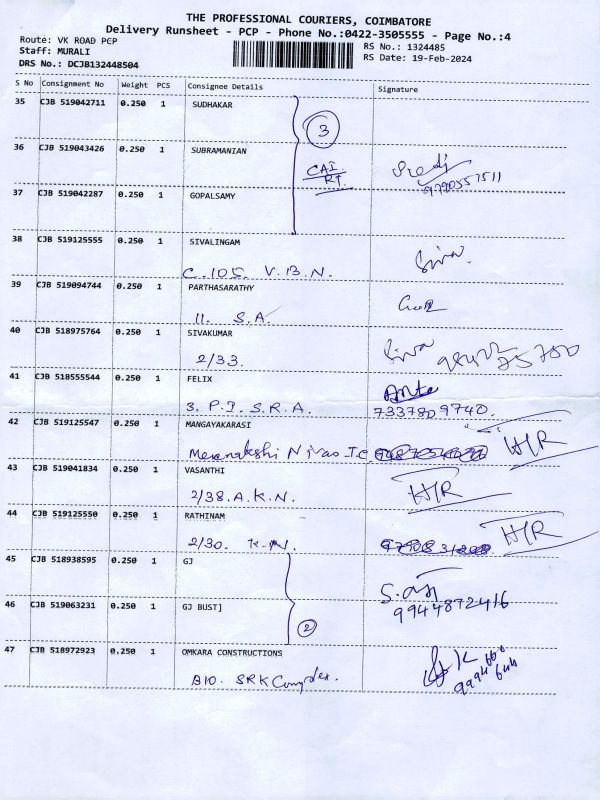 THE PROFESSIONAL COURIERS, COIMBATORE
Delivery Runsheet - PCP - Phone No.:0422-3505555 - Page No.:4
Route: VK ROAD PCP
Staff: MURALI
DRS No.: DCJB132448504
RS No.: 1324485
RS Date: 19-Feb-2024
S No Consignment No Weight PCS Consignee Details Signature
35 CJB 519042711 0.250 1 SUDHAKAR
3
36 CJB 519043426 0.250 1 SUBRAMANIAN
9790557511
37 CJB 519042287 0.250 1 GOPALSAMY
38 CJB 519125555 0.250 1 SIVALINGAM
C. 105. V.B.N. Siva
39 CJB 519094744 0.250 1 PARTHASARATHY
11. S.A.
40 CJB 518975764 0.250 1 SIVAKUMAR
2/33. Siva
41 CJB 518555544 0.250 1 FELIX
3. P.J. S.R.A. 7337809740.
42 CJB 519125547 0.250 1 MANGAYAKARASI
Meenakshi Nivas H/R
43 CJB 519041834 0.250 1 VASANTHI
2/38. A.K.N. H/R
44 CJB 519125550 0.250 1 RATHINAM
2/30. K.N. H/R
45 CJB 518938595 0.250 1 GJ
9944872416
46 CJB 519063231 0.250 1 GJ BUST]
2
47 CJB 518972923 0.250 1 OMKARA CONSTRUCTIONS
B10. SRK Complex.